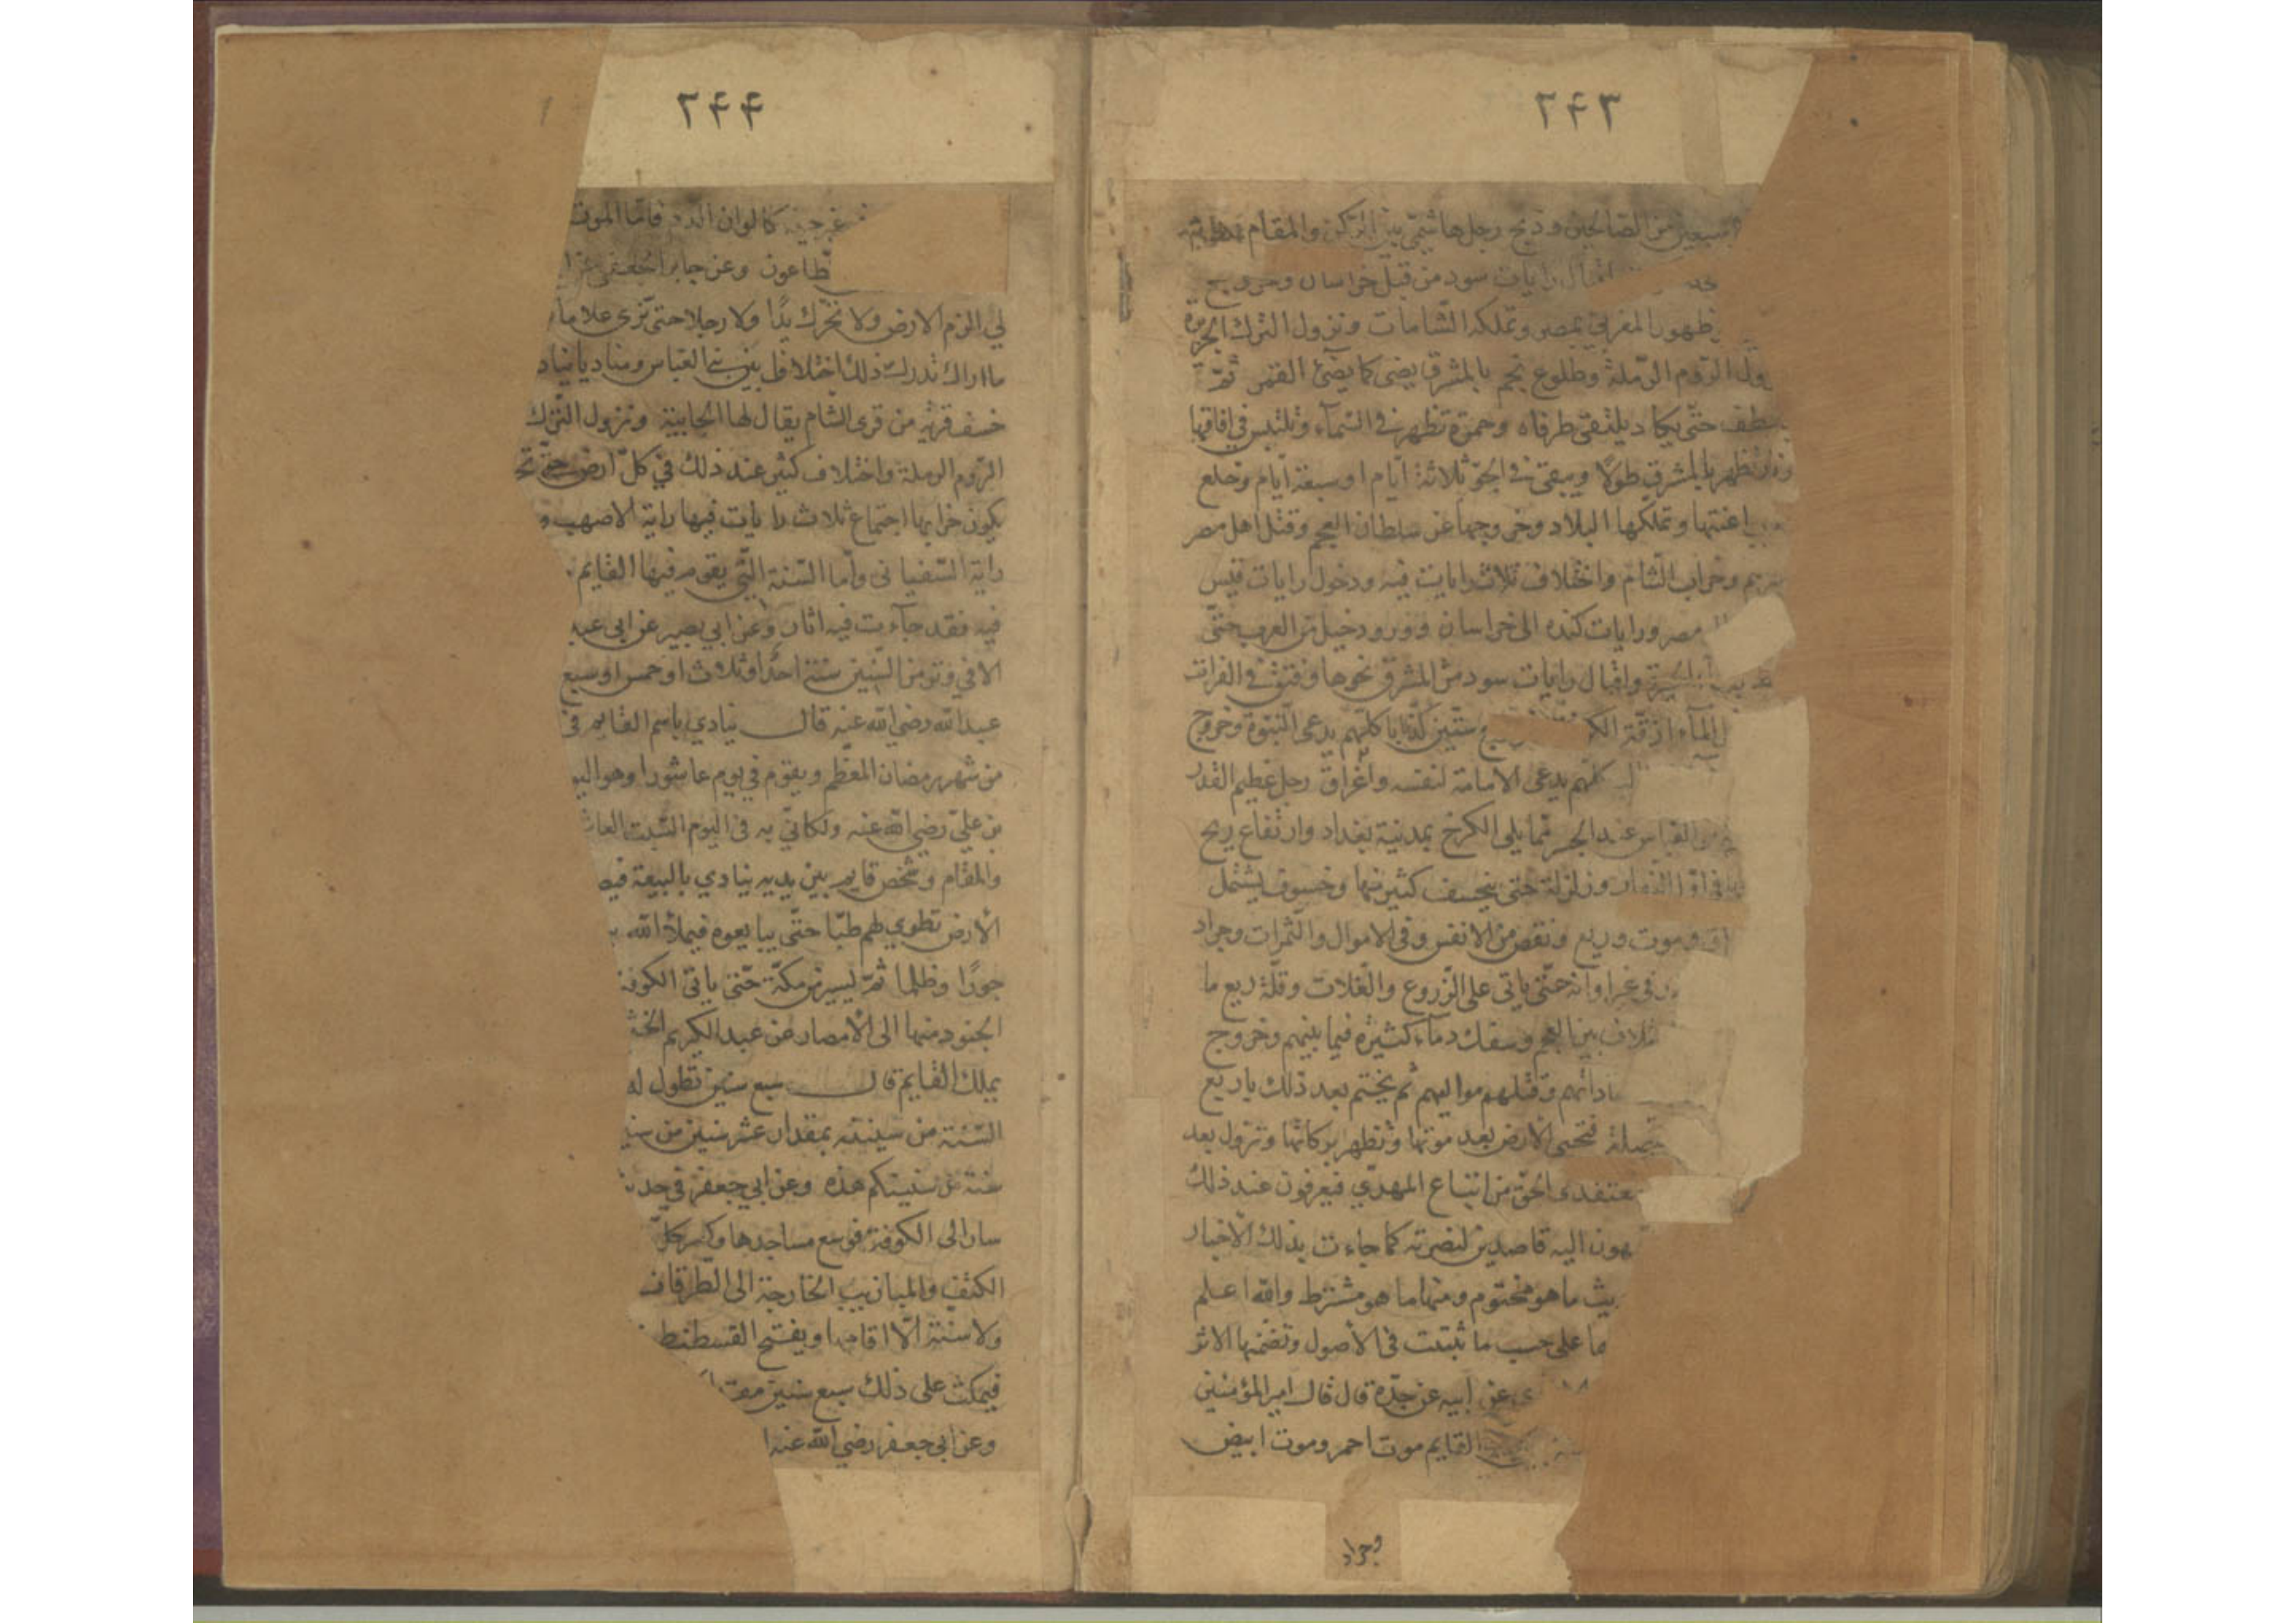 ٢٤٣
سبعين من الصالحين وذبح رجل هاشمي بين الركن والمقام
اقبال رايات سود من قبل خراسان وخروج
ظهور المغربي بمصر وتملكه الشامات ونزول الترك الجزيرة
ول الروم الرملة وطلوع نجم بالمشرق يضئ كما يضئ القمر ثم
ينعطف حتى يكاد يلتقي طرفاه وحمرة تظهر في السماء وتلتبس في افاقها
تظهر بالمشرق طولا ويبقى في الجو ثلاثة ايام او سبعة ايام وخلع
اعنتها وتملكها البلاد وخروجها عن سلطان العجم وقتل اهل مصر
وخراب الشام واختلاف ثلاث رايات فيه ودخول رايات قيس
مصر ورايات كنده الى خراسان وورود خيل من العرب حتى
الحيرة واقبال رايات سود من المشرق نحوها وفتق في الفرات
الماء ازقة ستين كذابا كلهم يدعى النبوة وخروج
كلهم يدعى الامامة لنفسه واغراق رجل عظيم القدر
العباس عند الجسر مما يلي الكرخ بمدينة بغداد وارتفاع ريح
النهار وزلزلة حتى ينخسف كثير منها وخسوف يشتمل
وموت وريع ونقص من الانفس وفي الاموال والثمرات وجراد
في غير اوانه حتى ياتى على الزروع والغلات وقلة ريع ما
تلاف بين العجم وسفك دماء كثيرة فيما بينهم وخروج
ساداتهم وقتلهم مواليهم ثم يختم بعد ذلك باربع
متصلة فتحيى الارض بعد موتها وتظهر بركاتها وتزول بعد
معتقدى الحق من اتباع المهدي فيعرفون عند ذلك
هون اليه قاصدين لنصرته كما جاءت بذلك الاخبار
يث ما هو محتوم ومنها ما هو مشترط والله اعلم
ما على حسب ما ثبتت في الأصول وتضمنها الاثر
عن ابيه عن جده قال قال امير المؤمنين
القايم موت احمر وموت ابيض
وجراد
٢٤٤
غير حينه كالوان الدم فاما الموت
طاعون وعن جابر الجعفي عن ا
لي الزم الارض ولا تحرك يدا ولا رجلا حتى ترى علاما
ما اراك تدرك ذلك اختلاف بين بني العباس ومناديا يناد
خسف قرية من قرى الشام يقال لها الجابية ونزول الترك
الروم الرملة واختلاف كثير عند ذلك في كل ارض حتى تخ
يكون خرابها اجتماع ثلاث رايات فيها راية الاصهب و
راية السفياني وأما السنة التي يقوم فيها القايم
فيه فقد جاءت فيه اثار وعن ابي بصير عن ابي عبد
الا في وتر من السنين سنة احدا وثلاث او خمس او سبع
عبد الله رضي الله عنه قال ينادي باسم القايم في
من شهر رمضان المعظم ويقوم في يوم عاشورا وهو اليو
بن علي رضي الله عنه ولكاني به في اليوم السبت العاش
والمقام وشخص قايم بين يديه ينادي بالبيعة فيص
الأرض تطوي لهم طيا حتى يبايعوه فيملأ الله ب
جورا وظلما ثم يسير من مكة حتى ياتى الكوفة
الجنود منها الى الأمصار عن عبد الكريم الخث
يملك القايم قال سبع سنين تطول له
السنة من سنينه بمقدار عشر سنين من سني
سنة من سنينكم هذه وعن ابي جعفر في حديث
سار الى الكوفة فوسع مساجدها وكسر كل
الكنف والميازيب الخارجة الى الطرقات
ولا سنة الا اقامها ويفتح القسطنط
فيمكث على ذلك سبع سنين مقد
وعن ابي جعفر رضي الله عنه ا